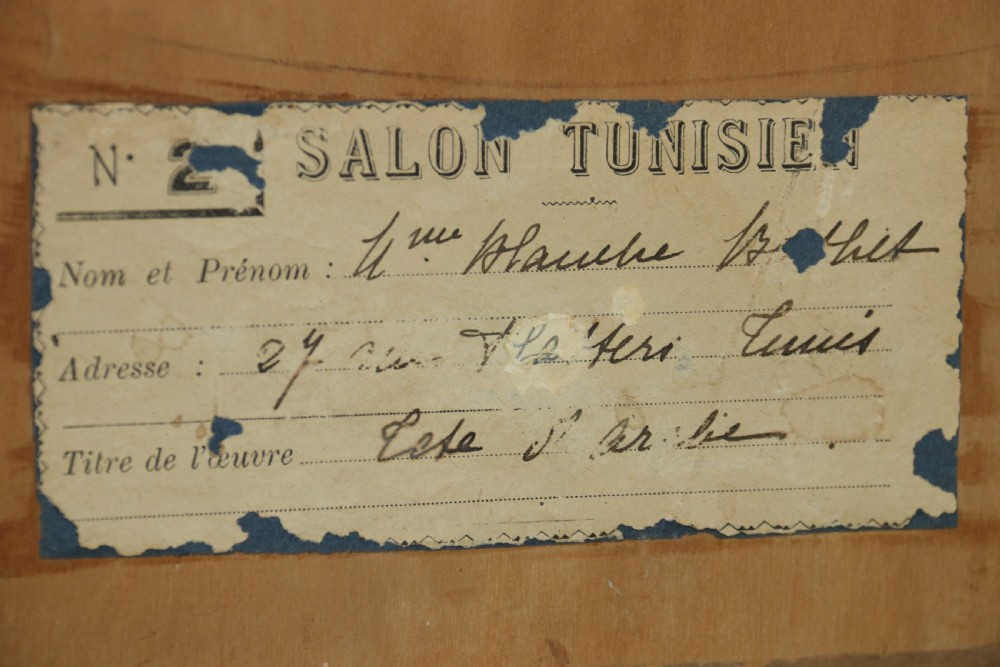 N° 2 SALON TUNISIEN
Nom et Prénom : Mme Blanche
Adresse : 27 Tunis
Titre de l'œuvre Tete d'arabe .